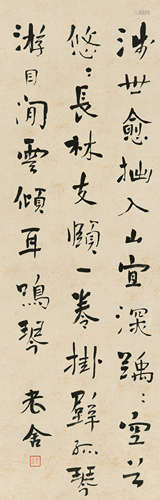 涉世愈拙入山宜深踽〻空谷
悠〻長林支頤一卷掛壁孤琴
游目閒雲傾耳鳴琴 老舍